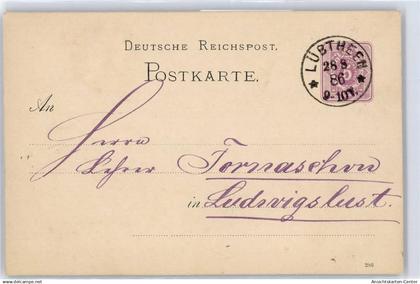 DEUTSCHE REICHSPOST.
POSTKARTE.
LÜBTHEEN
28 8
86
9-10V.
An
Herrn
Lehrer Tornaschon
in Ludwigslust.
286
Ansichtskarten-Center